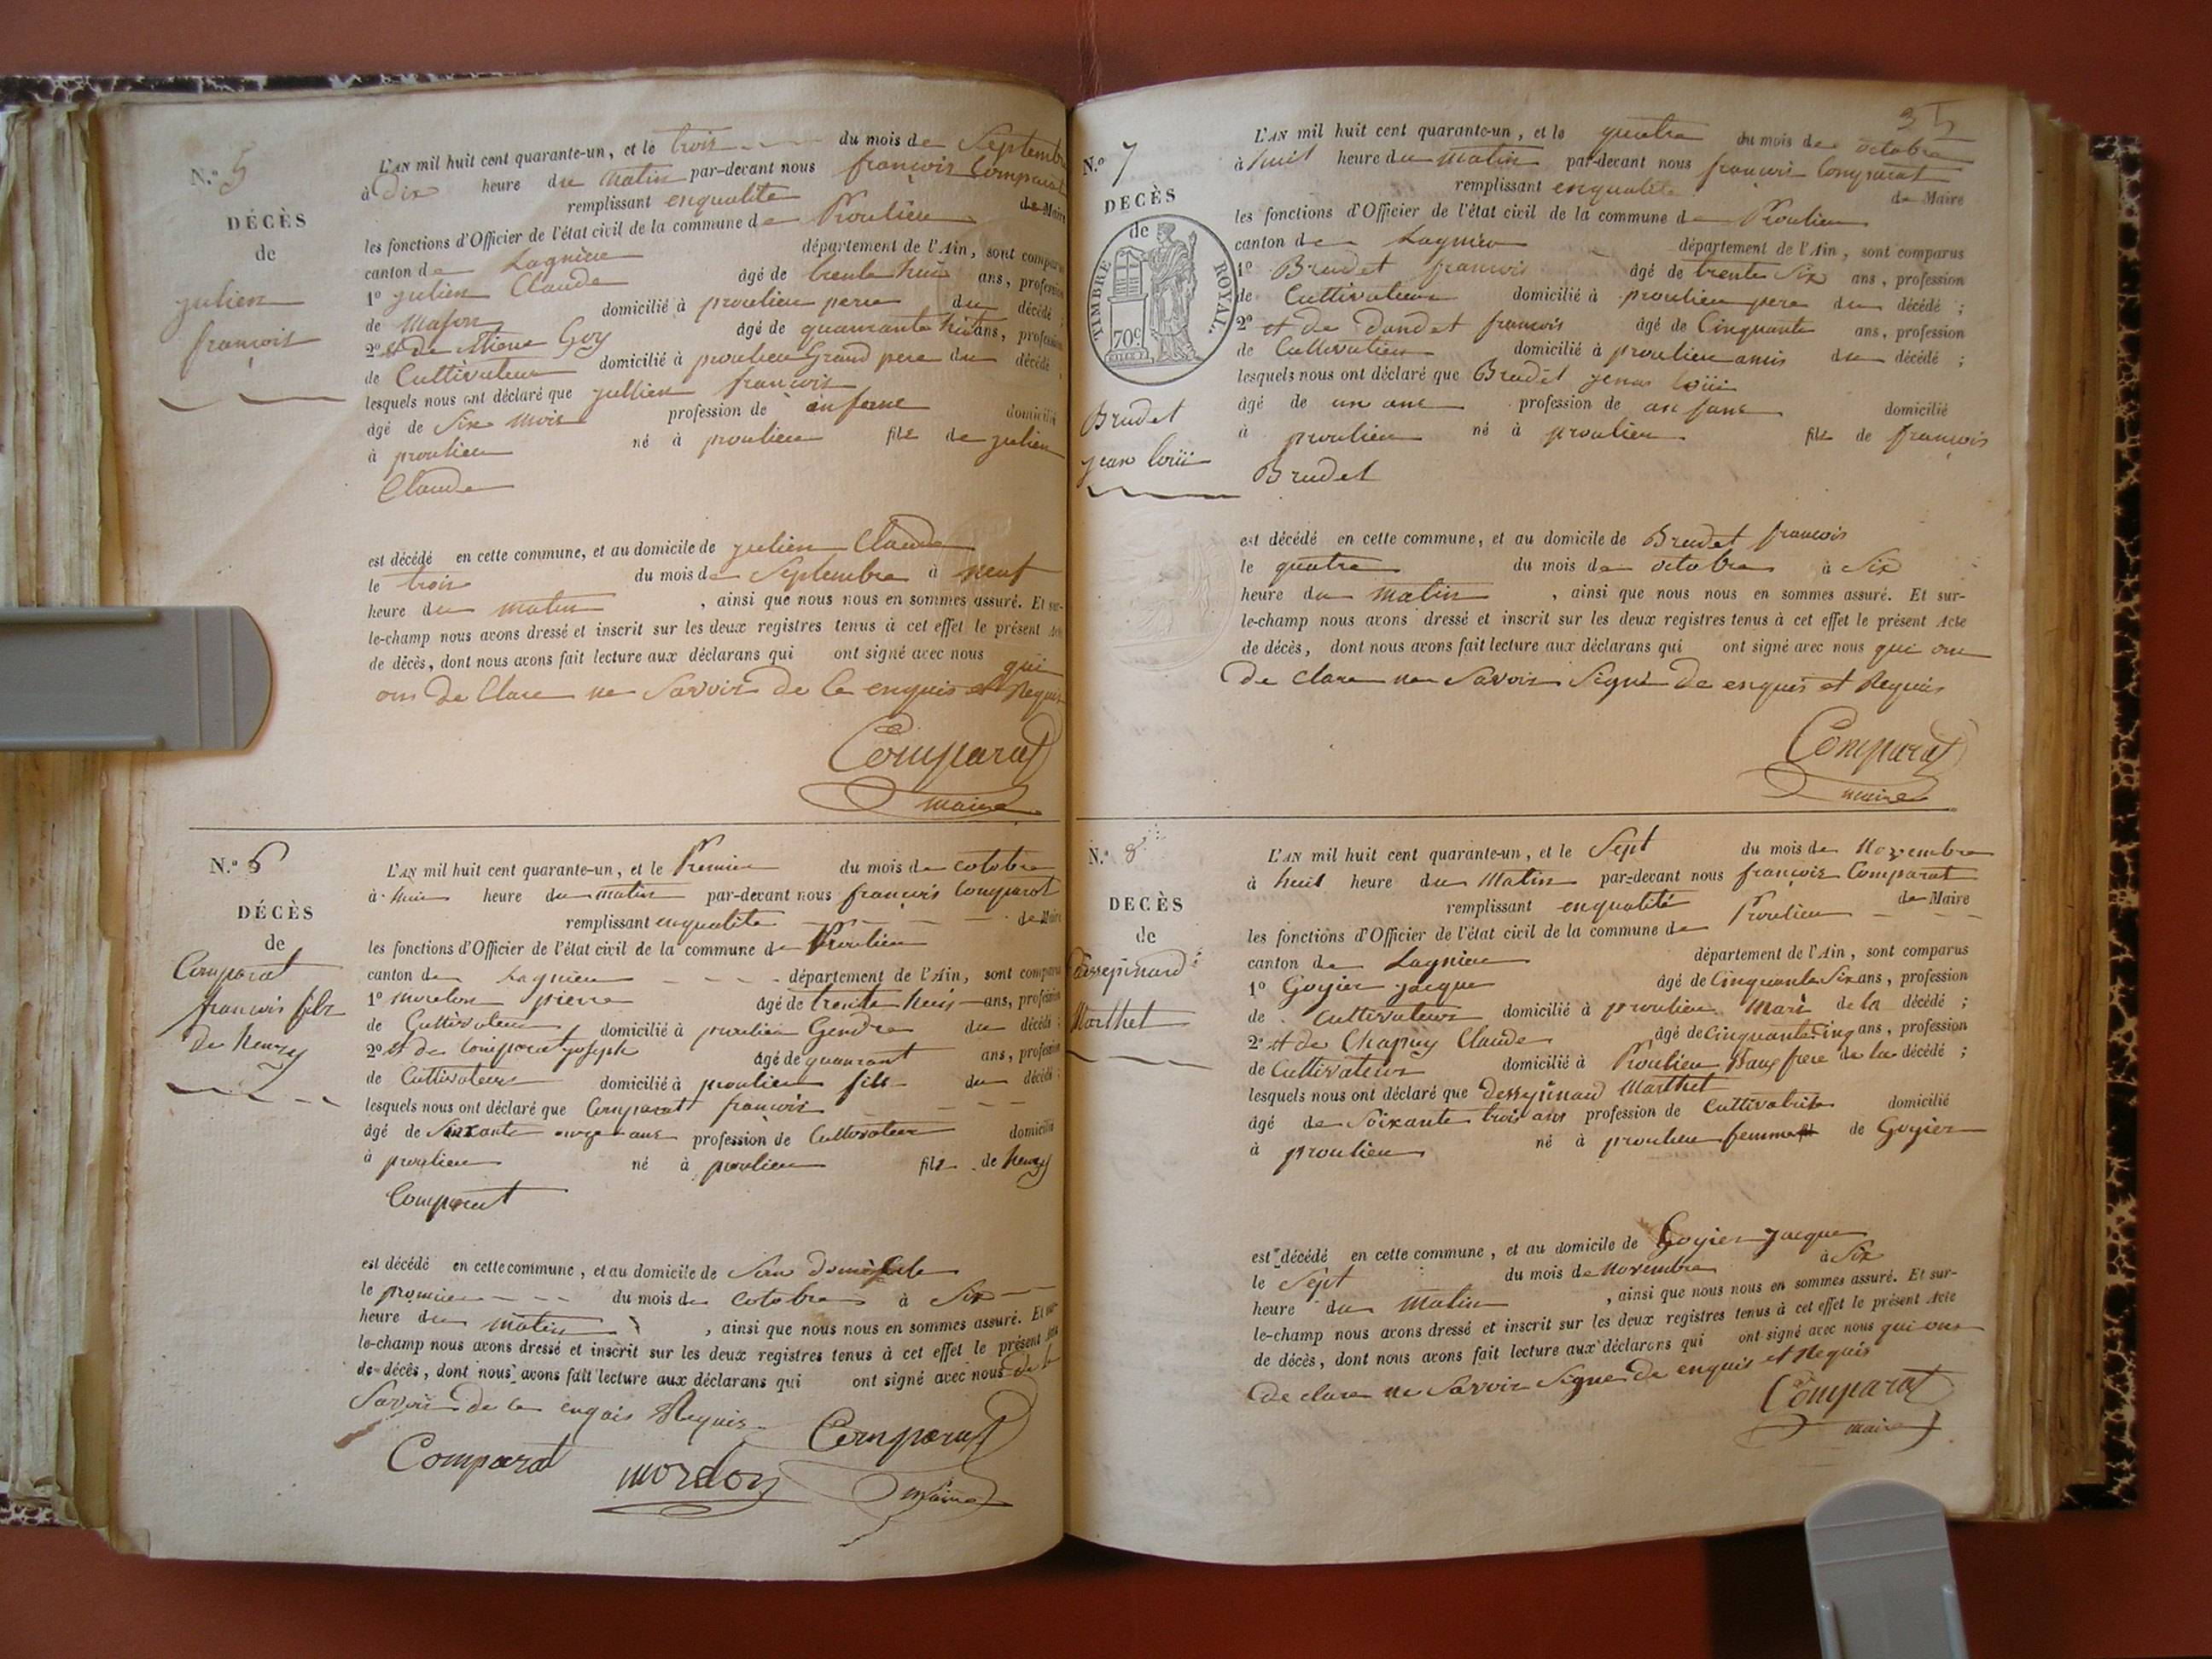 N.º 5
DÉCÈS
de
julien
françois
L'AN mil huit cent quarante-un, et le trois du mois de Septembre
à Dix heure du Matin par-devant nous françois Comparat
remplissant enqualite de Maire
les fonctions d'Officier de l'état civil de la commune de Proulieu
canton de Lagnieu département de l'Ain, sont comparus
1º julien Claude âgé de trente huit ans, profession
de Mason domicilié à proulieu pere du décédé ;
2º et de etiene Goy âgé de quarrante huit ans, profession
de Cultivateur domicilié à proulieu Grand pere du décédé ;
lesquels nous ont déclaré que jullien françois
âgé de Six mois profession de enfane domicilié
à proulieu né à proulieu fils de julien
Claude
est décédé en cette commune, et au domicile de julien Claude
le trois du mois de Septembre à neuf
heure du matin , ainsi que nous nous en sommes assuré. Et sur-
le-champ nous avons dressé et inscrit sur les deux registres tenus à cet effet le présent Acte
de décès, dont nous avons fait lecture aux déclarans qui ont signé avec nous qui
ons de Clare ne Savoir de le enquis et Requis
Comparat
maire
N.º 6
DÉCÈS
de
Comparat
françois fils
de henry
L'AN mil huit cent quarante-un, et le Premier du mois de octobre
à huit heure du matin par-devant nous françois Comparat
remplissant enqualite de Maire
les fonctions d'Officier de l'état civil de la commune de Proulieu
canton de Lagnieu département de l'Ain, sont comparus
1º morelon pierre âgé de trente huit ans, profession
de Cultivateur domicilié à proulieu Gendre du décédé ;
2º et de Comparat joseph âgé de quarrant ans, profession
de Cultivateur domicilié à proulieu fils du décédé ;
lesquels nous ont déclaré que Comparat françois
âgé de Soixante onze ans profession de Cultivateur domicilié
à proulieu né à proulieu fils de henry
Comparat
est décédé en cette commune, et au domicile de Son domicile
le premier du mois de octobre à Six
heure du matin , ainsi que nous nous en sommes assuré. Et sur-
le-champ nous avons dressé et inscrit sur les deux registres tenus à cet effet le présent Acte
de décès, dont nous avons fait lecture aux déclarans qui ont signé avec nous
Savoir de le enquis Requis
Comparat morelon Comparat
maire
35
N.º 7
DECÈS
de
TIMBRE ROYAL.
70c
Brudet
jean loüi
L'AN mil huit cent quarante-un, et le quatre du mois de octobre
à huit heure du matin par-devant nous françois Comparat
remplissant enqualite de Maire
les fonctions d'Officier de l'état civil de la commune de Proulieu
canton de Lagnieu département de l'Ain, sont comparus
1º Brudet françois âgé de trente Six ans, profession
de Cultivateur domicilié à proulieu pere du décédé ;
2º et de Dandet françois âgé de Cinquante ans, profession
de Cultivateur domicilié à proulieu amis du décédé ;
lesquels nous ont déclaré que Brudet jenas loüi
âgé de un ane profession de an fane domicilié
à proulieu né à proulieu fils de françois
Brudet
est décédé en cette commune, et au domicile de Brudet francois
le quatre du mois de octobre à Six
heure du matin , ainsi que nous nous en sommes assuré. Et sur-
le-champ nous avons dressé et inscrit sur les deux registres tenus à cet effet le présent Acte
de décès, dont nous avons fait lecture aux déclarans qui ont signé avec nous qui one
de clare ne Savoir Signé de enquis et Requis
Comparat
maire
N.º 8
DECÈS
de
Dessepinard
Marthet
L'AN mil huit cent quarante-un, et le Sept du mois de Novembre
à huit heure du Matin par-devant nous françois Comparat
remplissant enqualité de Maire
les fonctions d'Officier de l'état civil de la commune de Proulieu
canton de Lagnieu département de l'Ain, sont comparus
1º Goyier jacque âgé de Cinquante Six ans, profession
de Cultivateur domicilié à proulieu Mari de la décédé ;
2º et de Chapuy Claude âgé de Cinquante Cinq ans, profession
de Cultivateur domicilié à Proulieu Baux frere de la décédé ;
lesquels nous ont déclaré que Dessepinard Marthet
âgé de Soixante trois ans profession de Cultivatrise domicilié
à proulieu né à proulieu femme fil de Goyier
est décédé en cette commune, et au domicile de Goyier Jacque
le Sept du mois de Novembre à Six
heure du Matin , ainsi que nous nous en sommes assuré. Et sur-
le-champ nous avons dressé et inscrit sur les deux registres tenus à cet effet le présent Acte
de décès, dont nous avons fait lecture aux déclarans qui ont signé avec nous qui ons
de clare ne Savoir Signe de enquis et Requis
Comparat
maire